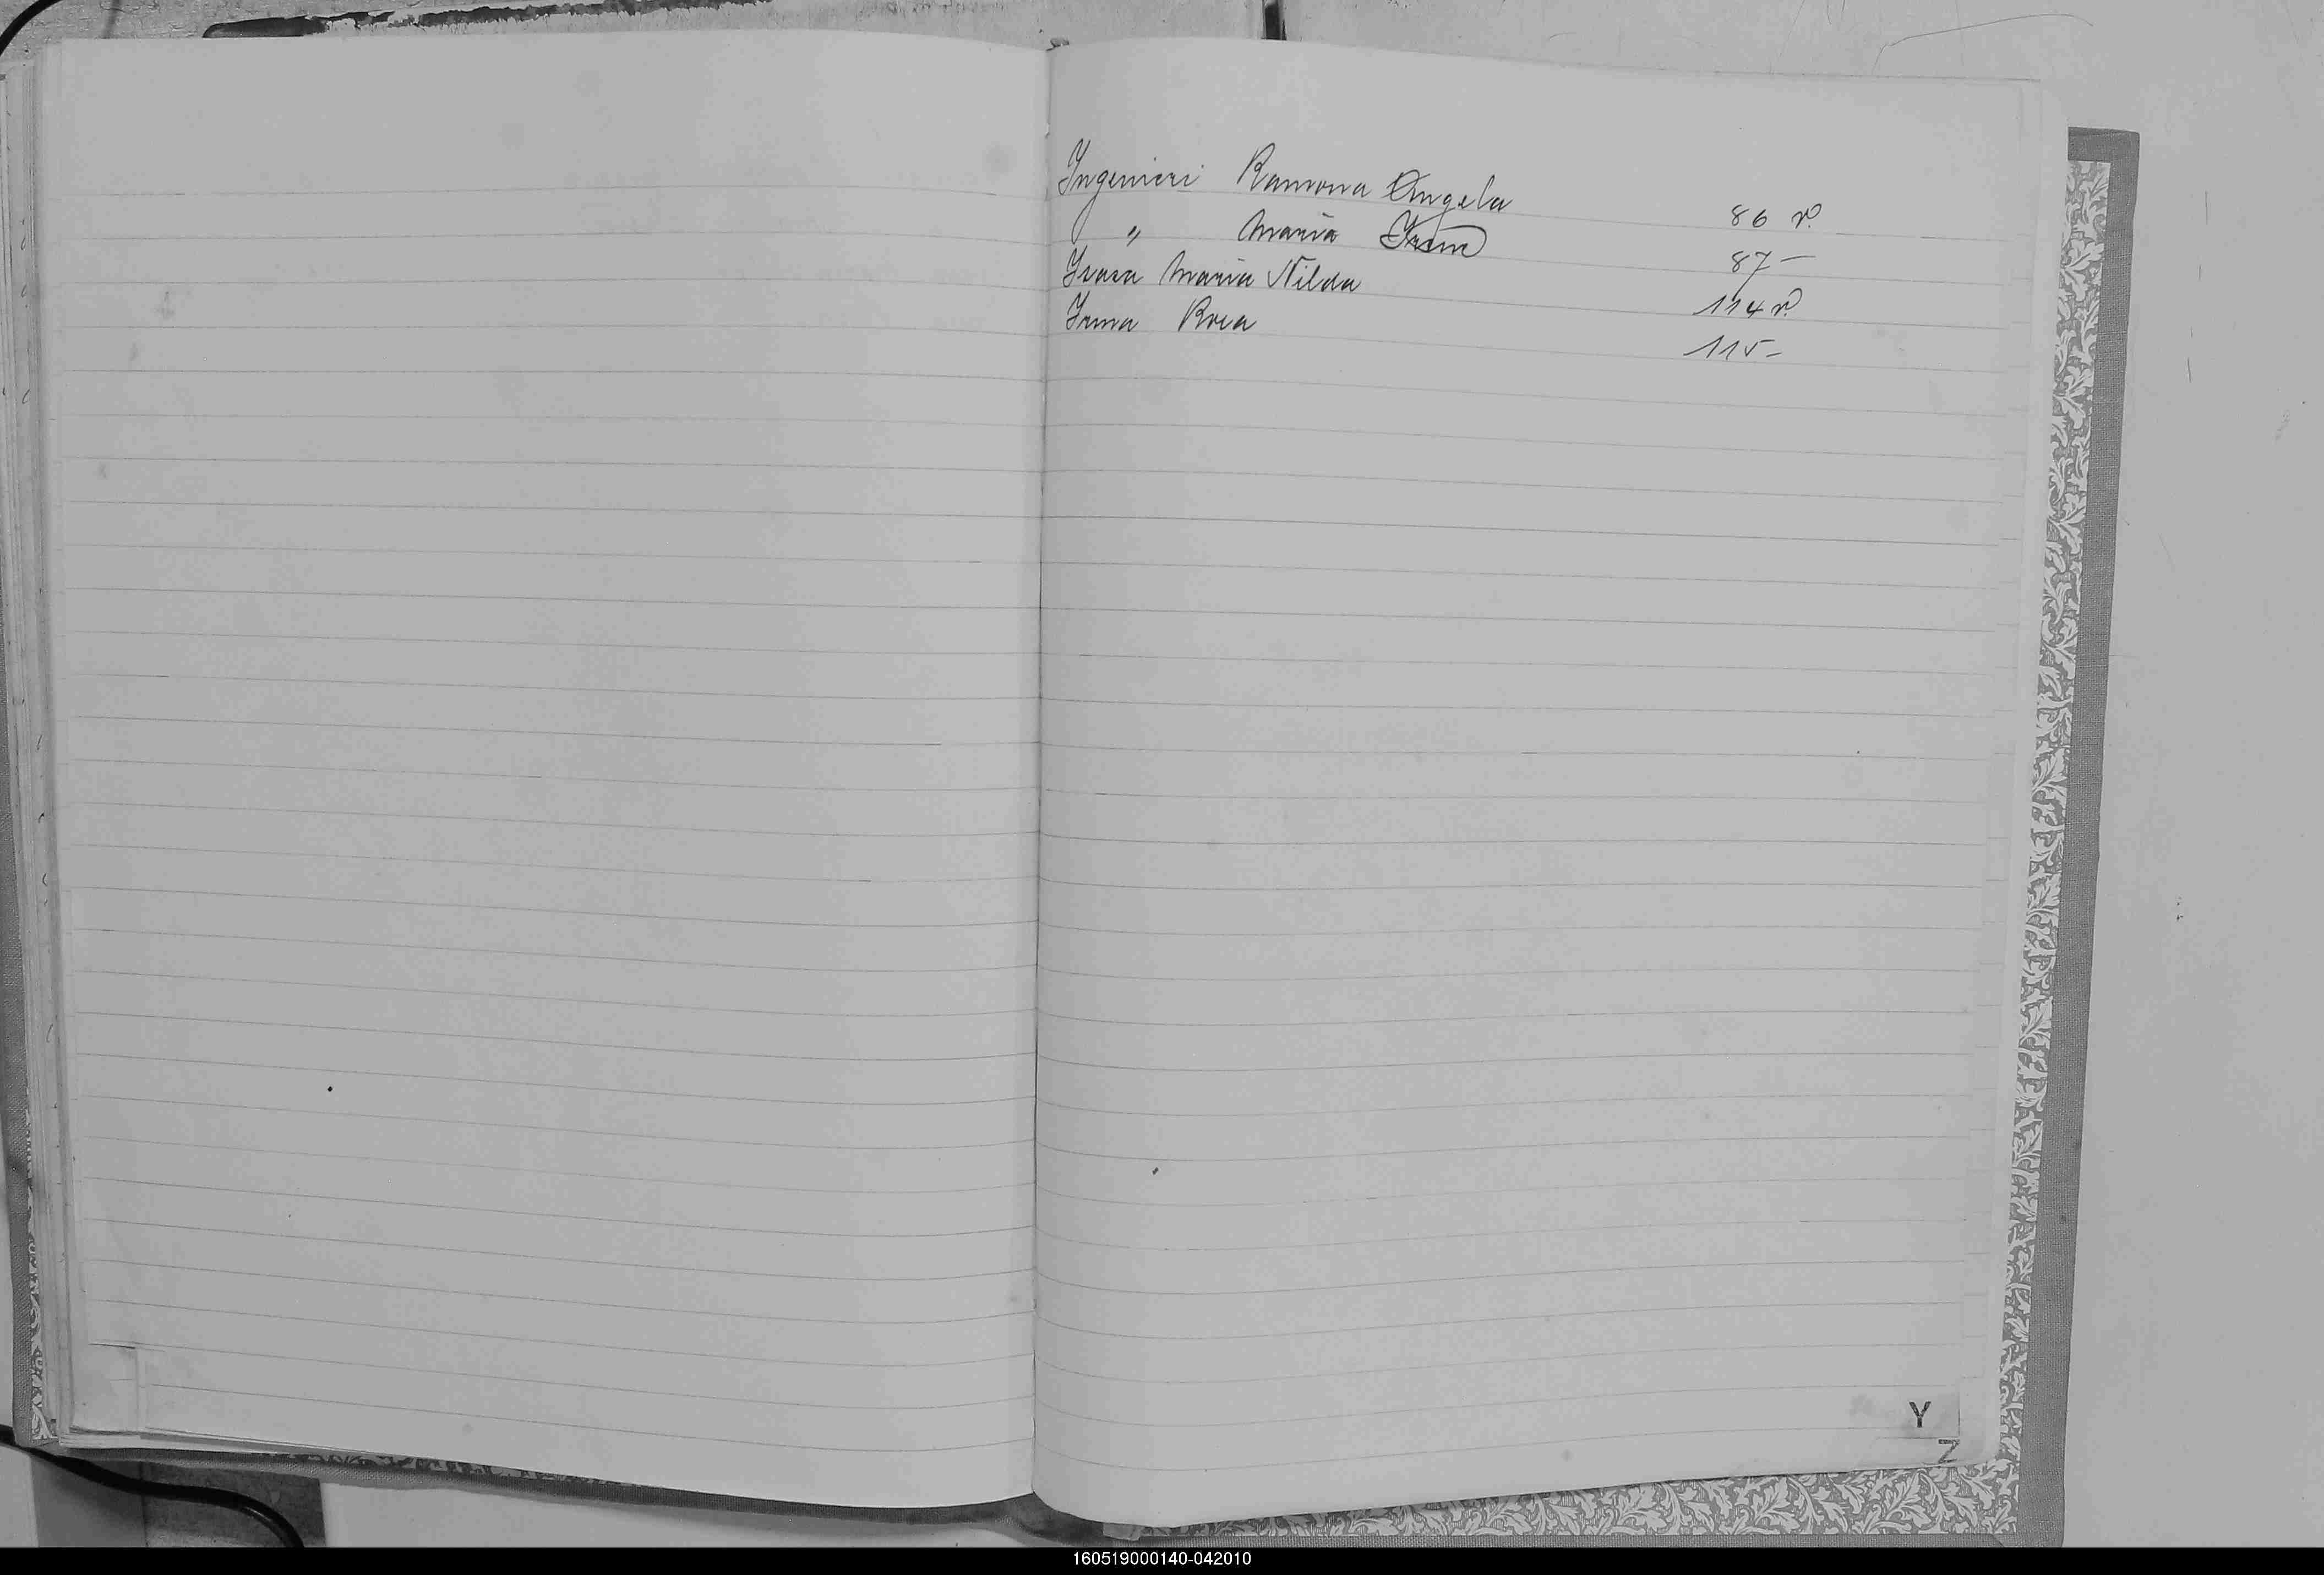 Ingenieri Ramona Angela 86 v.
" Maria Irene 87 -
Maria Nilda 114 v.
Rosa 115 -
Y
Z
160519000140-042010